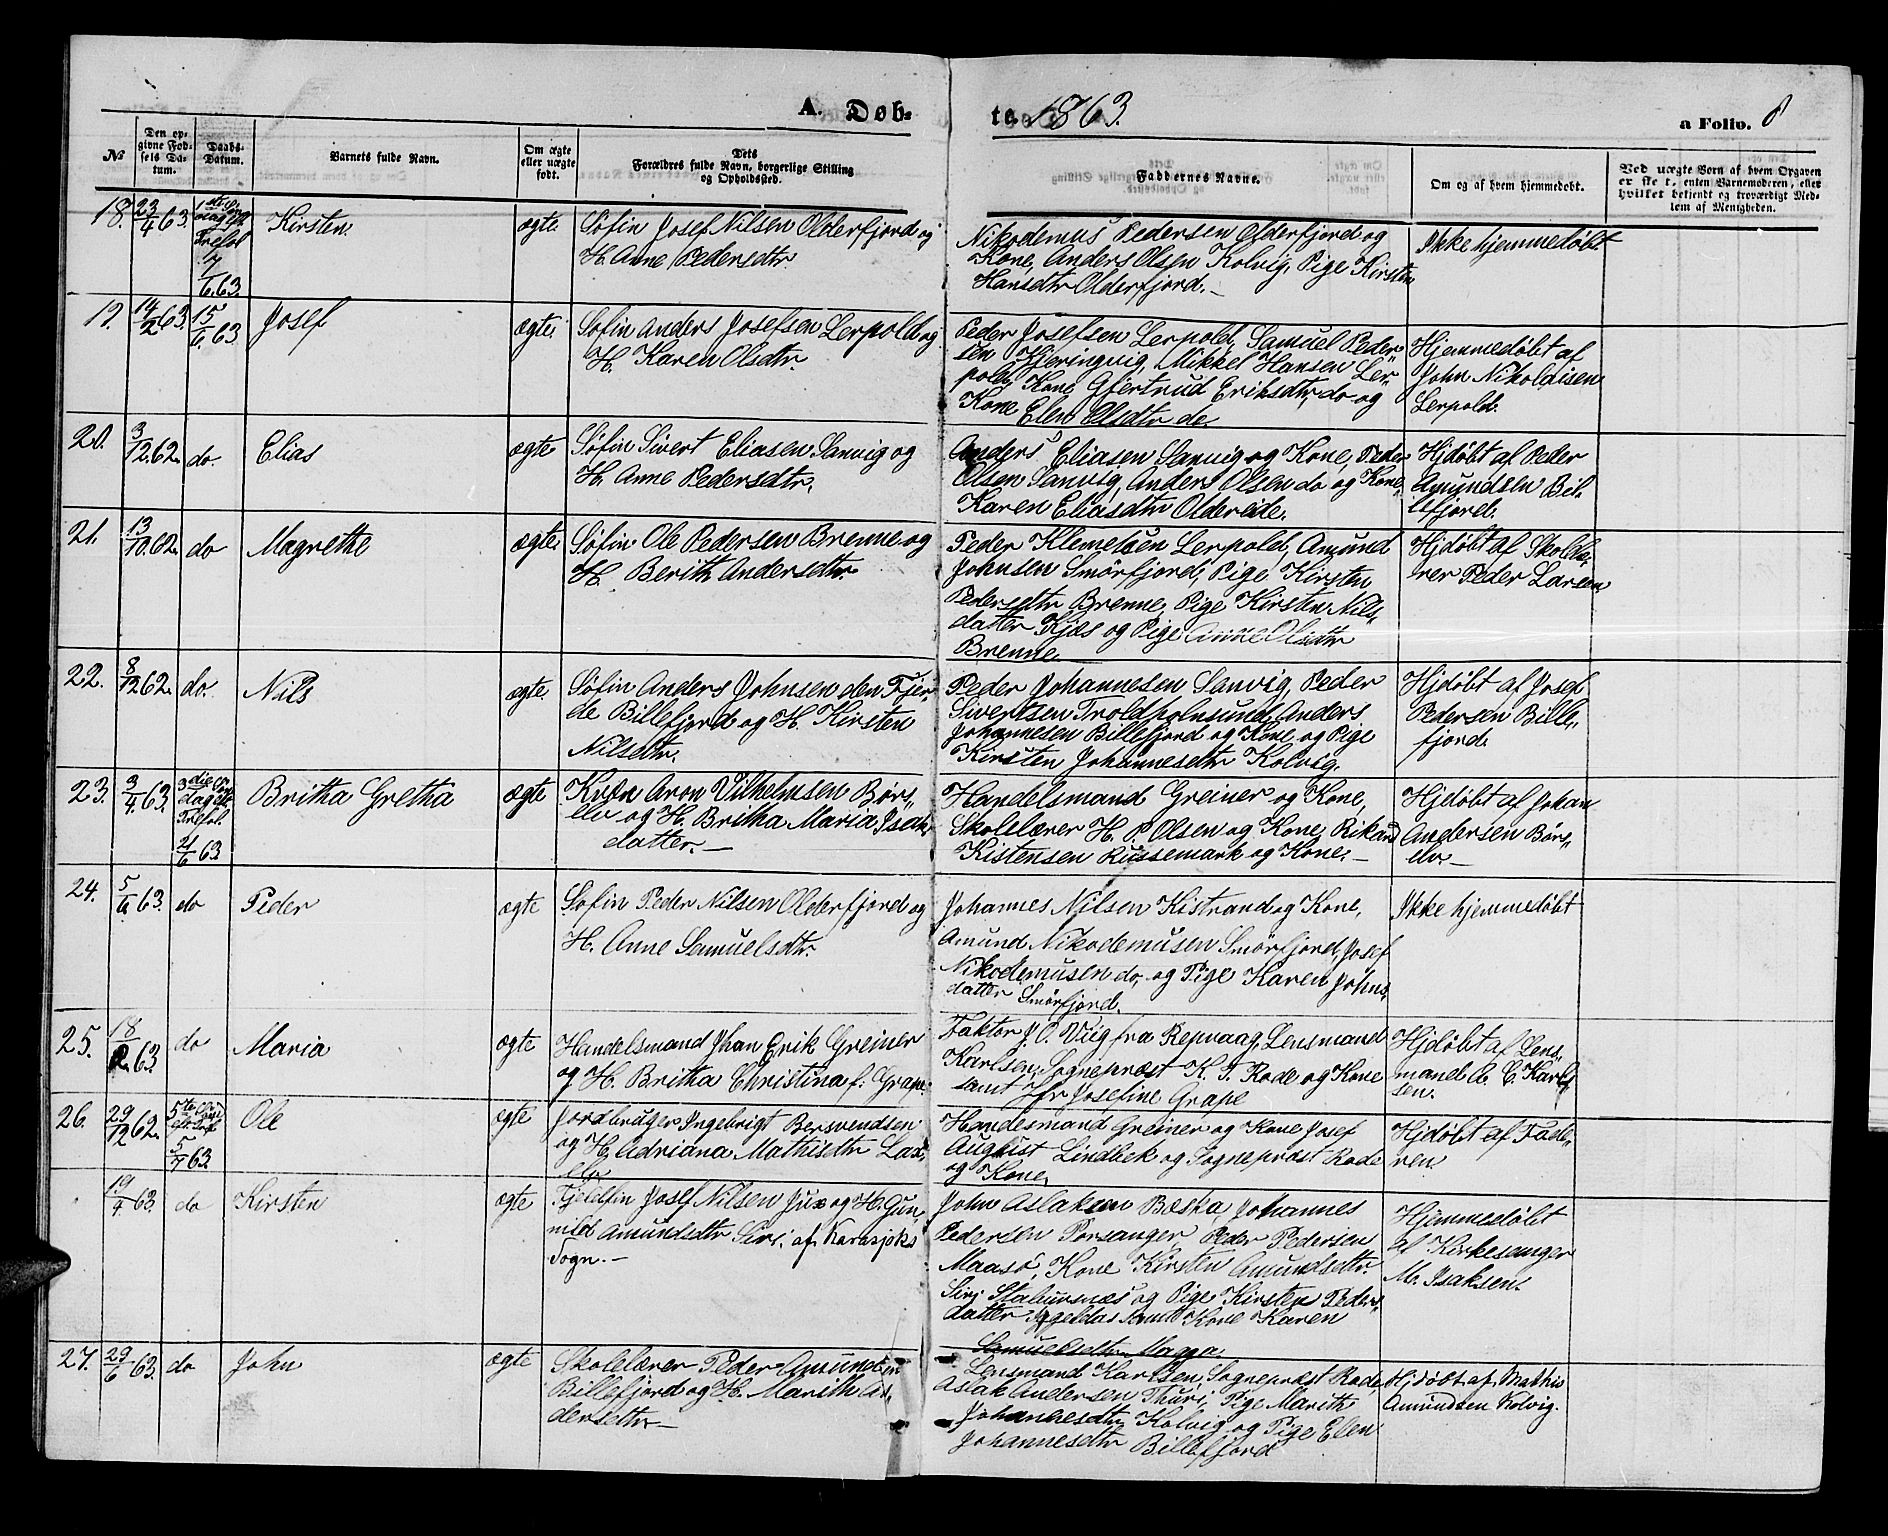 A. Døb-
te 1863.
a Folio. 8
No
Den op-
givne Fød-
sels Da-
tum.
Daabs-
Datum.
Barnets fulde Navn.
Om ægte
eller uægte
født.
Dets
Forældres fulde Navn, borgerlige Stilling
og Opholdssted.
Faddernes Navne.
Om og af hvem hjemmedøbt.
Ved uægte Børn af hvem Opgaven
er sket, enten Barnemoderen, eller
hvilket bekjendt og troværdigt Med-
lem af Menigheden.
18. 23/4 63.
7/6. 63.
Kirsten.
ægte.
Søfin Josef Nilsen Olderfjord og
H. Anne Pedersdtr.
Nikodemus Pedersen Olderfjord og
Kone, Anders Olsen Kolvig, Pige Kirsten
Hansdtr Olderfjord.
Ikke hjemmedøbt.
19. 14/2 63. 15/6. 63.
Josef
ægte.
Søfin Anders Josefsen Lerpold og
H. Karen Olsdtr.
Peder Josefsen Lerpold, Samuel Peder-
sen Kjeringvig, Mikkel Hansen Ler-
pold, Kone Gjertrud Eriksdtr do og
Kone Elen Olsdtr do.
Hjemmedøbt af
John Nikolaisen
Lerpold.
20. 3/12. 62. do.
Elias
ægte
Søfin Sivert Eliasen Sanvig og
H. Anne Pedersdtr.
Anders Eliasen Sanvig og Kone, Peder
Olsen Sanvig, Anders Olsen do og Kone,
Karen Eliasdtr Oldereide.
Hjdøbt af Peder
Amundsen Bil-
lefjord.
21. 13/10. 62. do
Magrethe
ægte.
Søfin Ole Pedersen Brenne og
H. Berith Andersdtr.
Peder Klemetsen Lerpold, Amund
Johnsen Smörfjord, Pige Kirsten
Pedersdtr Brenne, Pige Kirsten Nils-
datter Kjæs og Pige Anne Olsdtr
Brenne
Hjdøbt af Skolelæ-
rer Peder Larsen
22. 8/12 62. do.
Nils
ægte.
Søfin Anders Johnsen den Fjer-
de Billefjord og H. Kirsten
Nilsdtr.
Peder Johannesen Sanvig, Peder
Sivertsen Troldholmsund, Anders
Johannesen Billefjord og Kone og Pige
Kirsten Johannesdtr Kolvig.
Hjdøbt af Josef
Pedersen Bille-
fjord.
23. 3/4. 63.
21/6 63
Britha Gretha
ægte
Kvæn Aron Vilhelmsen Børs-
elv og H. Britha Maria Isak-
datter.
Handelsmand Greiner og Kone,
Skolelærer H. P. Olsen og Kone, Rikard
Kistensen Russemark og Kone.
Hjdøbt af Johan
Andersen Børs-
elv.
24. 5/6. 63. do
Peder
ægte
Søfin Peder Nilsen Olderfjord og
H. Anne Samuelsdtr.
Johannes Nilsen Kistrand og Kone,
Amund Nikodemusen Smörfjord, Josef
Nikodemusen do, og Pige Karen Johns-
datter Smörfjord.
Ikke hjemmedøbt
25. 18/2. 63 do
Maria
ægte
Handelsmand Jhan Erik Greiner
og H. Britha Christina f: Grape.
Faktor J. O. Viig fra Repvaag, Lensmand
Karlsen, Sognepræst K. T. Rode og Kone
samt Jfr Josefine Grape
Hjdøbt af Lens-
mand A. C. Karl-
sen.
26. 29/12 62.
5/7 63.
Ole
ægte
Jordbruger Ingebrigt Bersvendsen
og H. Adriana Mathisdtr Lax-
elv
Handesmand Greiner og Kone Josef
August Lindbek og Sognepræst Rode
og Kone.
Hjdøbt af Fade-
ren.
19/4. 63. do
Kirsten
ægte
Fjeldfin Josef Nilsen Jux og H. Gun-
nild Amundsdtr Siri af Karasjoks
Sogn.
John Aslaksen Bæska, Johannes
Pedersen Porsanger, Peder Pedersen
Maasø, Kone Kirsten Amundsdtr
og Pige Kirsten Peders-
datter samt Kone Karen
Samuelsdtr
Hjemmedöbt
af Kirkesanger
M. Isaksen.
27. 29/6 63. do
John
ægte
Skolelærer Peder Amundsen
Billefjord og H. Marith An-
dersdtr
Lensmand Karlsen, Sognepræst Rode
Aslak Andersen Thuri, Pige Marith
Johannesdtr Kolvig og Pige Elen
Johannesdtr Billefjord
Hjdøbt af Mathis
Amundsen Kolvig.